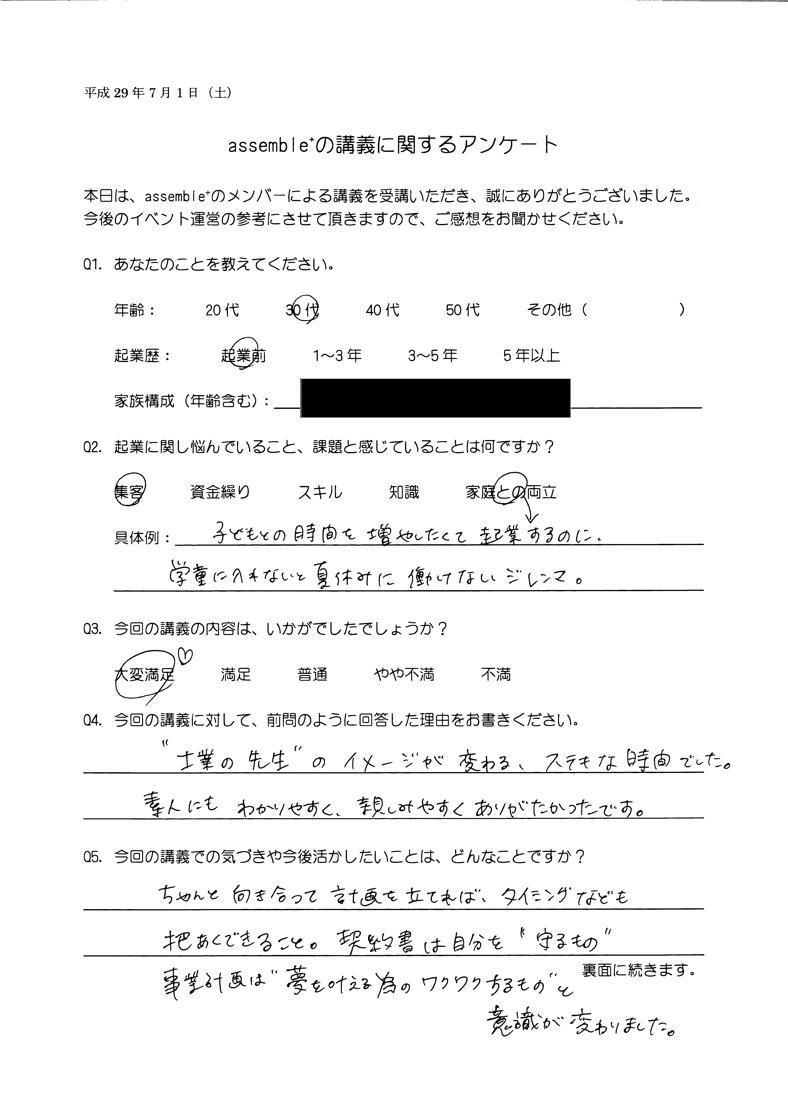 平成 29 年 7 月 1 日（土）
assemble⁺の講義に関するアンケート
本日は、assemble⁺のメンバーによる講義を受講いただき、誠にありがとうございました。
今後のイベント運営の参考にさせて頂きますので、ご感想をお聞かせください。
Q1. あなたのことを教えてください。
年齢： 20 代 30 代 40 代 50 代 その他（ ）
起業歴： 起業前 1～3 年 3～5 年 5 年以上
家族構成（年齢含む）：
Q2. 起業に関し悩んでいること、課題と感じていることは何ですか？
集客 資金繰り スキル 知識 家庭との両立
具体例： 子どもとの時間を増やしたくて起業するのに、
学童に入れないと夏休みに働けないジレンマ。
Q3. 今回の講義の内容は、いかがでしたでしょうか？
大変満足 満足 普通 やや不満 不満
Q4. 今回の講義に対して、前問のように回答した理由をお書きください。
"士業の先生"のイメージが変わる、ステキな時間でした。
素人にもわかりやすく、親しみやすくありがたかったです。
Q5. 今回の講義での気づきや今後活かしたいことは、どんなことですか？
ちゃんと向き合って計画を立てれば、タイミングなども
把あくできること。契約書は自分を"守るもの"
事業計画は"夢を叶える為のワクワクするもの"と
裏面に続きます。
意識が変わりました。